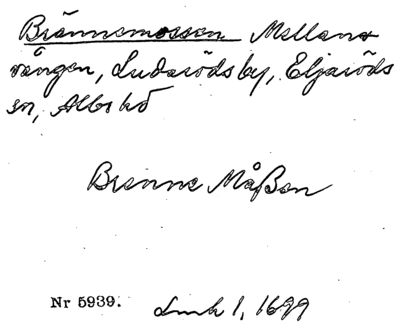 Brännemossen Mellanx
vången, Ludaröds by, Eljaröds
sn, Albo hd
Brenne Måßen
Nr 5939. Lmh 1, 1699